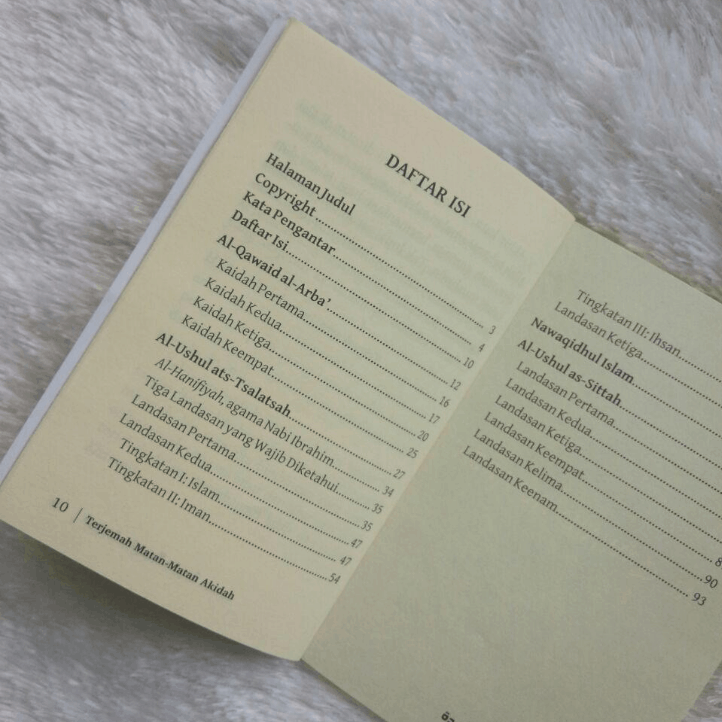 DAFTAR ISI
Halaman Judul
Copyright 3
Kata Pengantar 4
Daftar Isi 10
Al-Qawaid al-Arba' 12
Kaidah Pertama 16
Kaidah Kedua 17
Kaidah Ketiga 20
Kaidah Keempat 25
Al-Ushul ats-Tsalatsah 27
Al-Hanifiyah, agama Nabi Ibrahim 34
Tiga Landasan yang Wajib Diketahui 35
Landasan Pertama 35
Landasan Kedua 47
Tingkatan I: Islam 47
Tingkatan II: Iman 54
10 | Terjemah Matan-Matan Akidah
Tingkatan III: Ihsan
Landasan Ketiga
Nawaqidhul Islam
Al-Ushul as-Sittah
Landasan Pertama
Landasan Kedua
Landasan Ketiga
Landasan Keempat
Landasan Kelima 90
Landasan Keenam 93